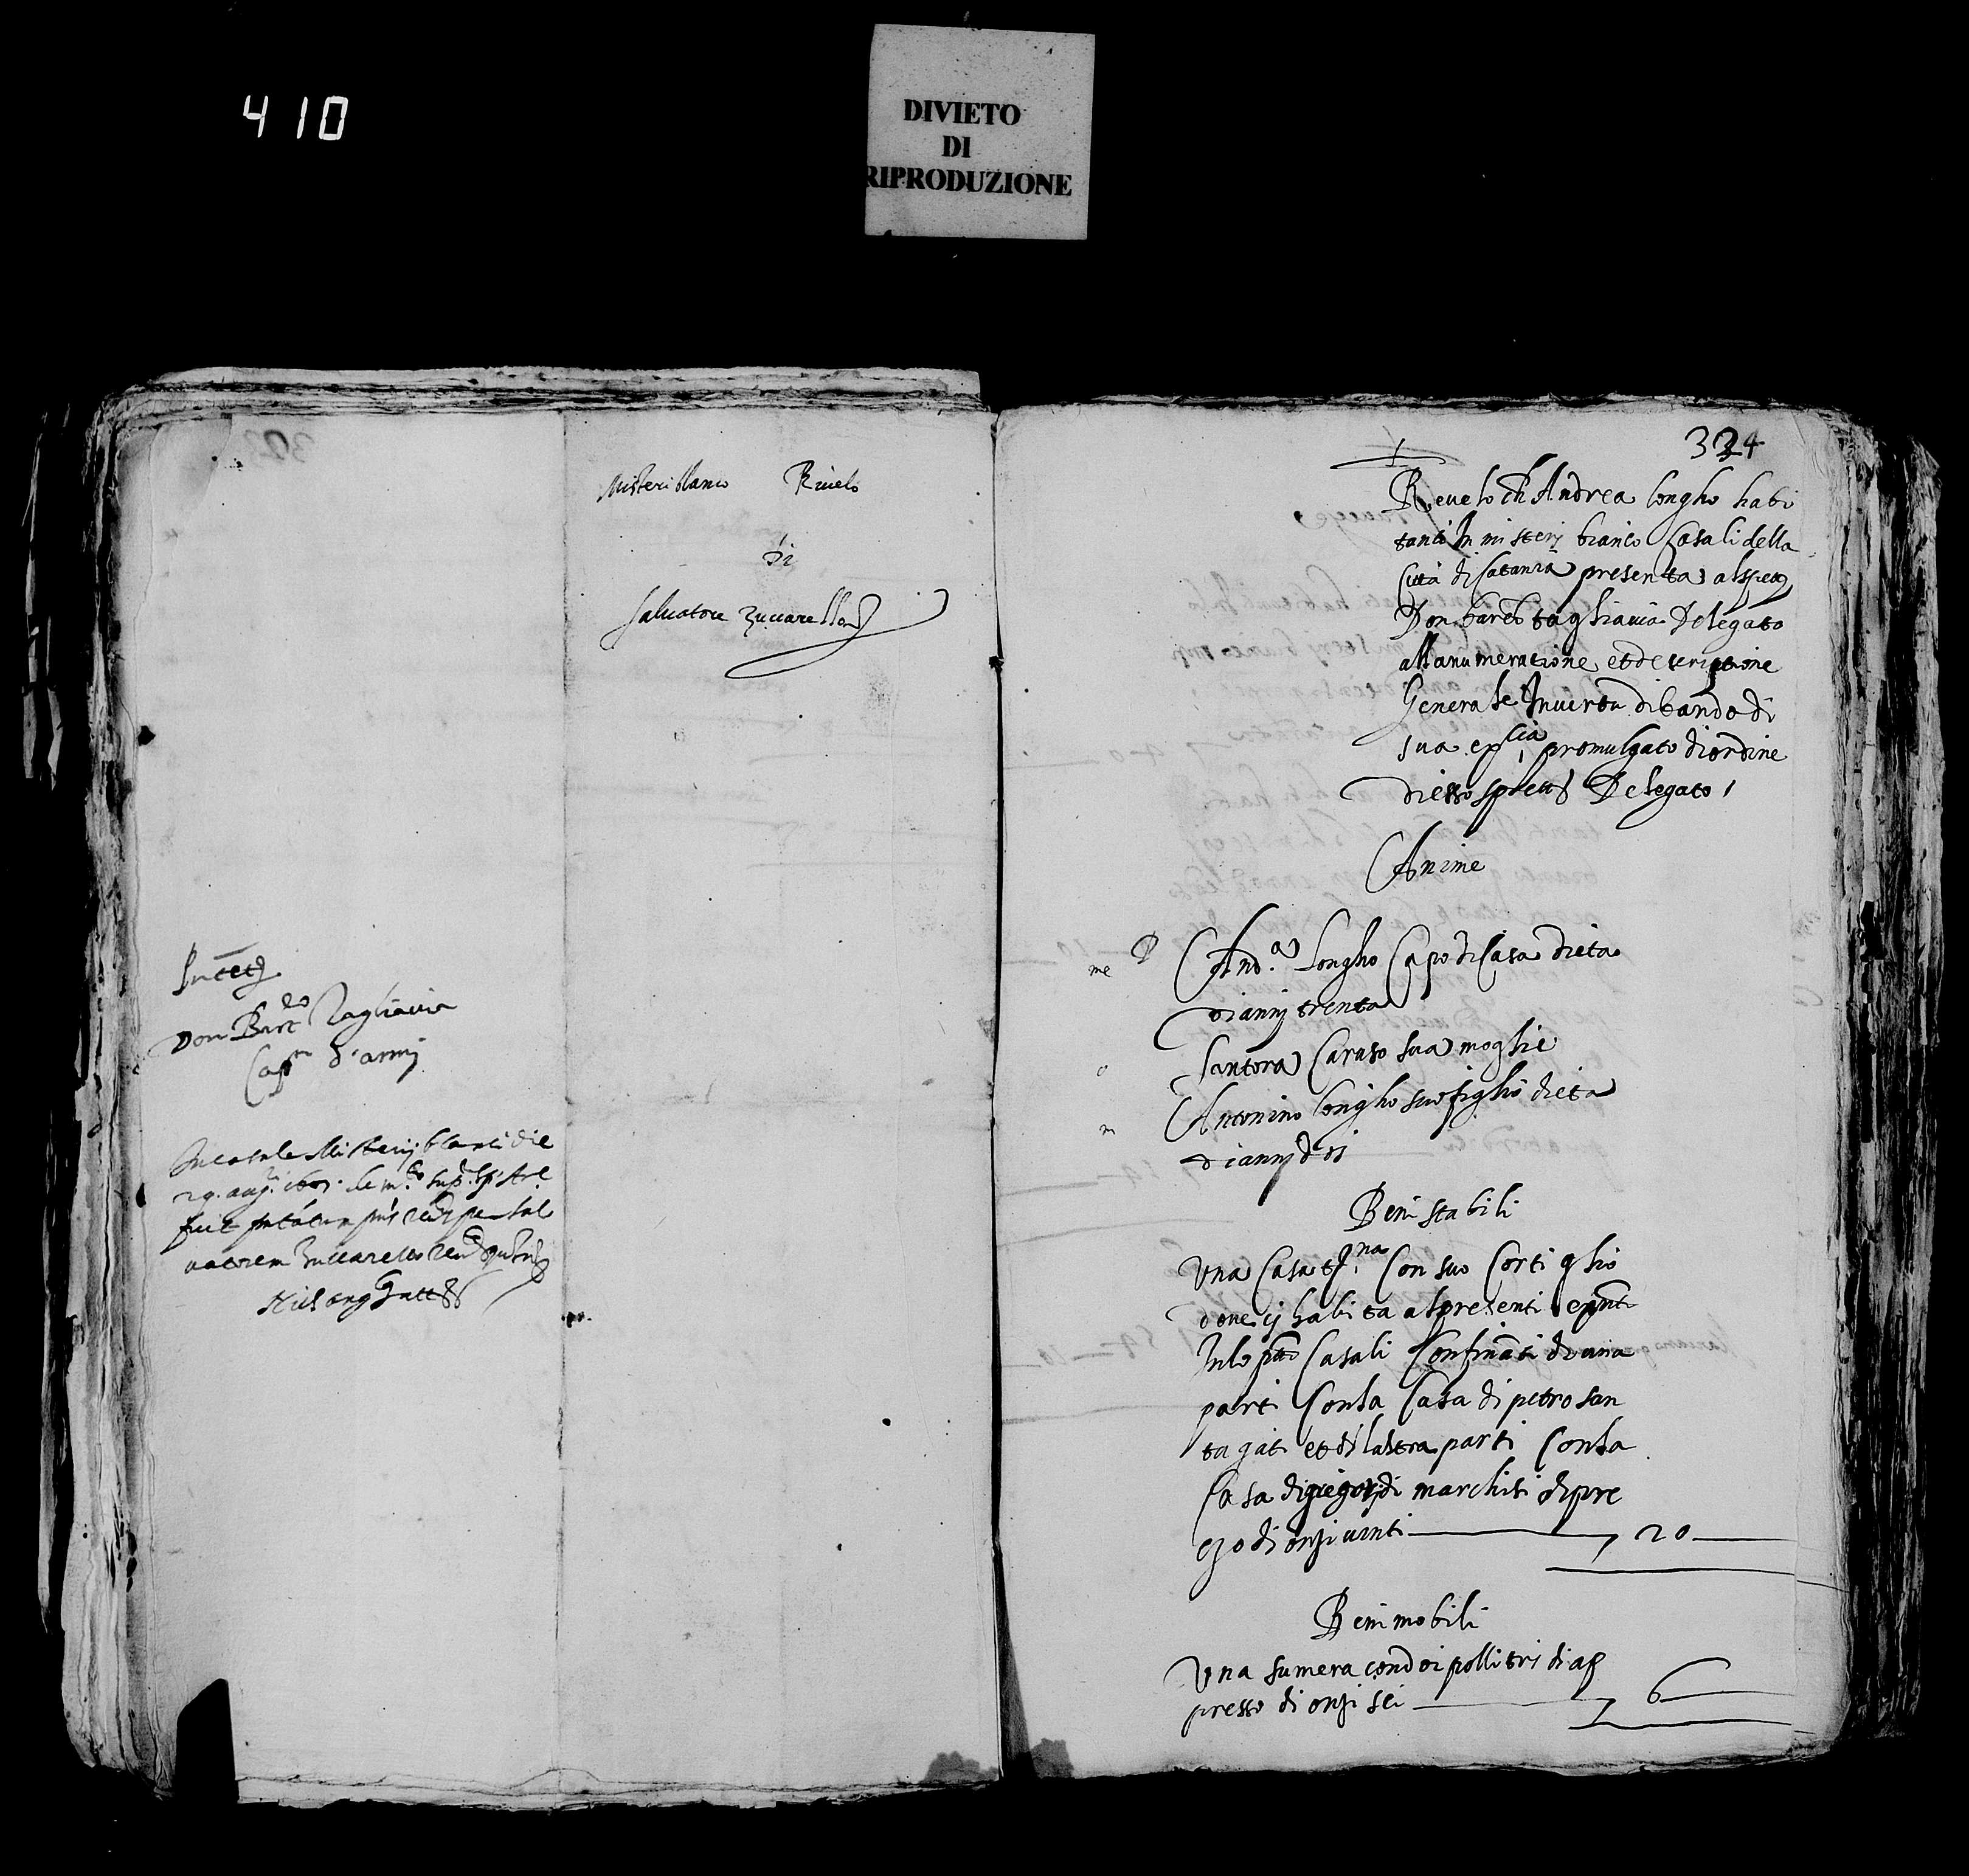 410
DIVIETO
DI
RIPRODUZIONE
Misteriblanco Rivelo
di
Salvatore Zuccarello
Don Bart.eo Tagliavia
Cap.n d'armi
In casale Misterij blanci die
29. aug.ti
fuit per Sal
vatorem Zuccarello
324
Revelo ch Andrea Longho habi
tanti In misterj bianco Casali della
Città di Catania presenta al spett
Don bar.eo tagliavia Delegato
alla numeratione et descriptione
Generale In virtu di bando di
sua ex.cia promulgato di ordine
di esso spett Delegato
Anime
me And.a Longho Capo di Casa di eta
di anni trenta
Santora Caruso sua moglie
m Antonino longho suo figlio di eta
di anni
Beni stabili
Una Casa con suo Cortiglio
dove ci habita al presenti
In lo Casali Confinati di una
parti Con la Casa di petro san
ta gati et di laltra parti Con la
Casa di marchisi di pre
czo di onzi vinti 20
Beni mobili
Una sumera con doi pollitri di ap
presso di onzi sei 6